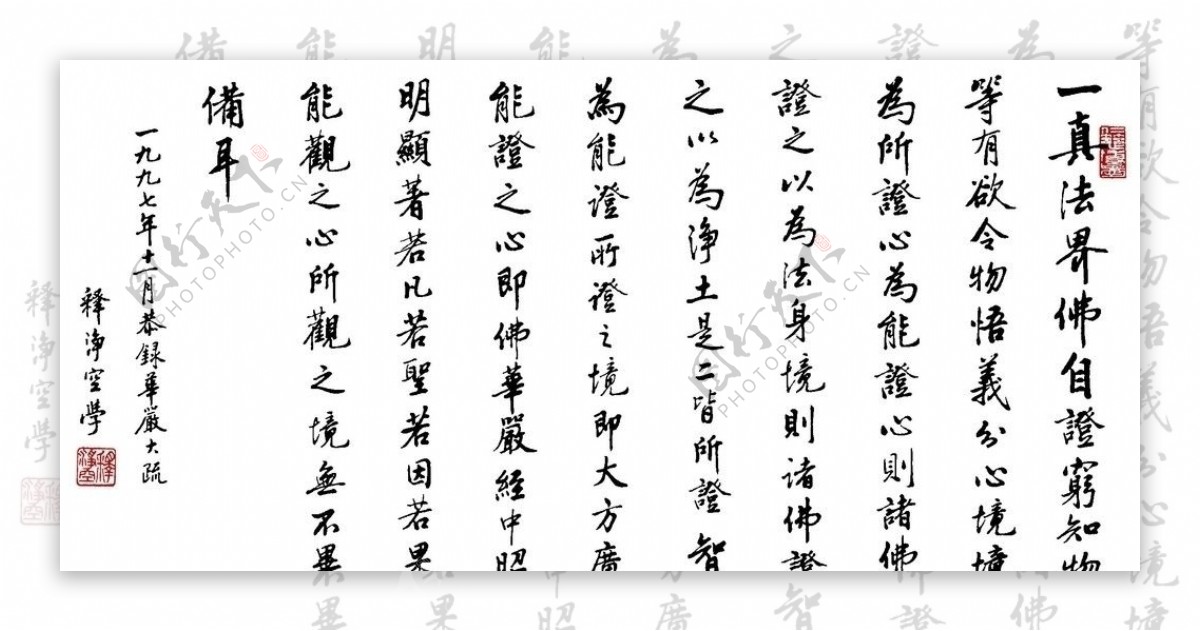 一真法界佛自證窮知物
等有欲令物悟義分心境境
為所證心為能證心則諸佛
證之以為法身境則諸佛證
之以為淨土是二皆所證智
為能證所證之境即大方廣
能證之心即佛華嚴經中昭
明顯著若凡若聖若因若果
能觀之心所觀之境無不畢
備耳
一九九七年十一月恭録華嚴大疏
释淨空學